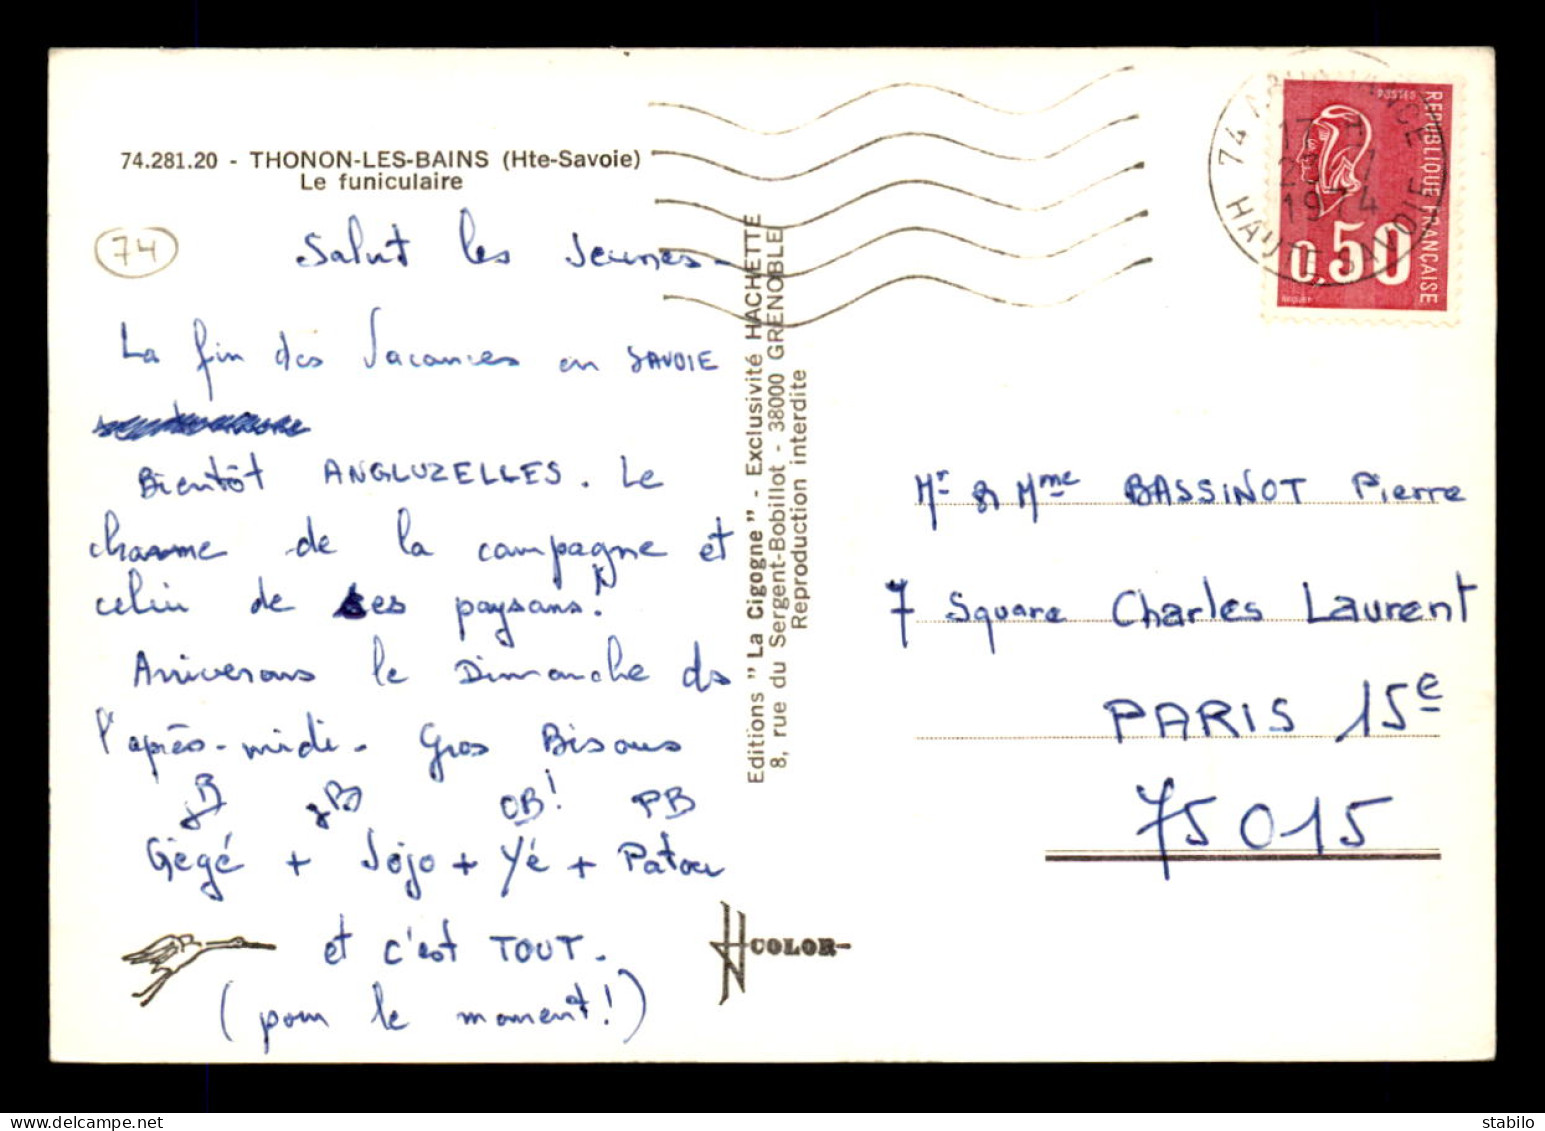 74.281.20 - THONON-LES-BAINS (Hte-Savoie)
Le funiculaire
74
Salut les Jeunes -
La fin des Vacances en SAVOIE
Bientôt ANGLUZELLES. Le
charme de la campagne et
celui de ses paysans.
Arriverons le Dimanche ds
l'après-midi - Gros Bisous
JB OB! PB
Gégé + Jojo + Yé + Patou
et c'est TOUT.
(pour le moment!)
Editions "La Cigogne" - Exclusivité HACHETTE
8, rue du Sergent-Bobillot - 38000 GRENOBLE
Reproduction interdite
COLOR
74
17 H
1974
HAUTE SAVOIE
POSTES
REPUBLIQUE FRANÇAISE
0,50
BEQUET
Mr & Mme BASSINOT Pierre
7 Square Charles Laurent
PARIS 15e
75015
stabilo - delcampe.net